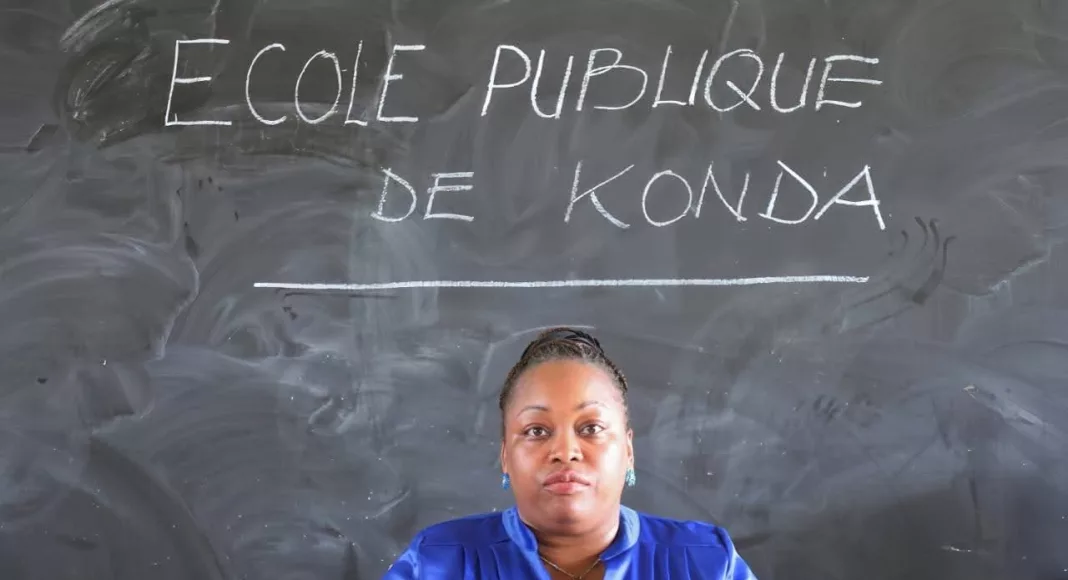 ECOLE PUBLIQUE
DE KONDA